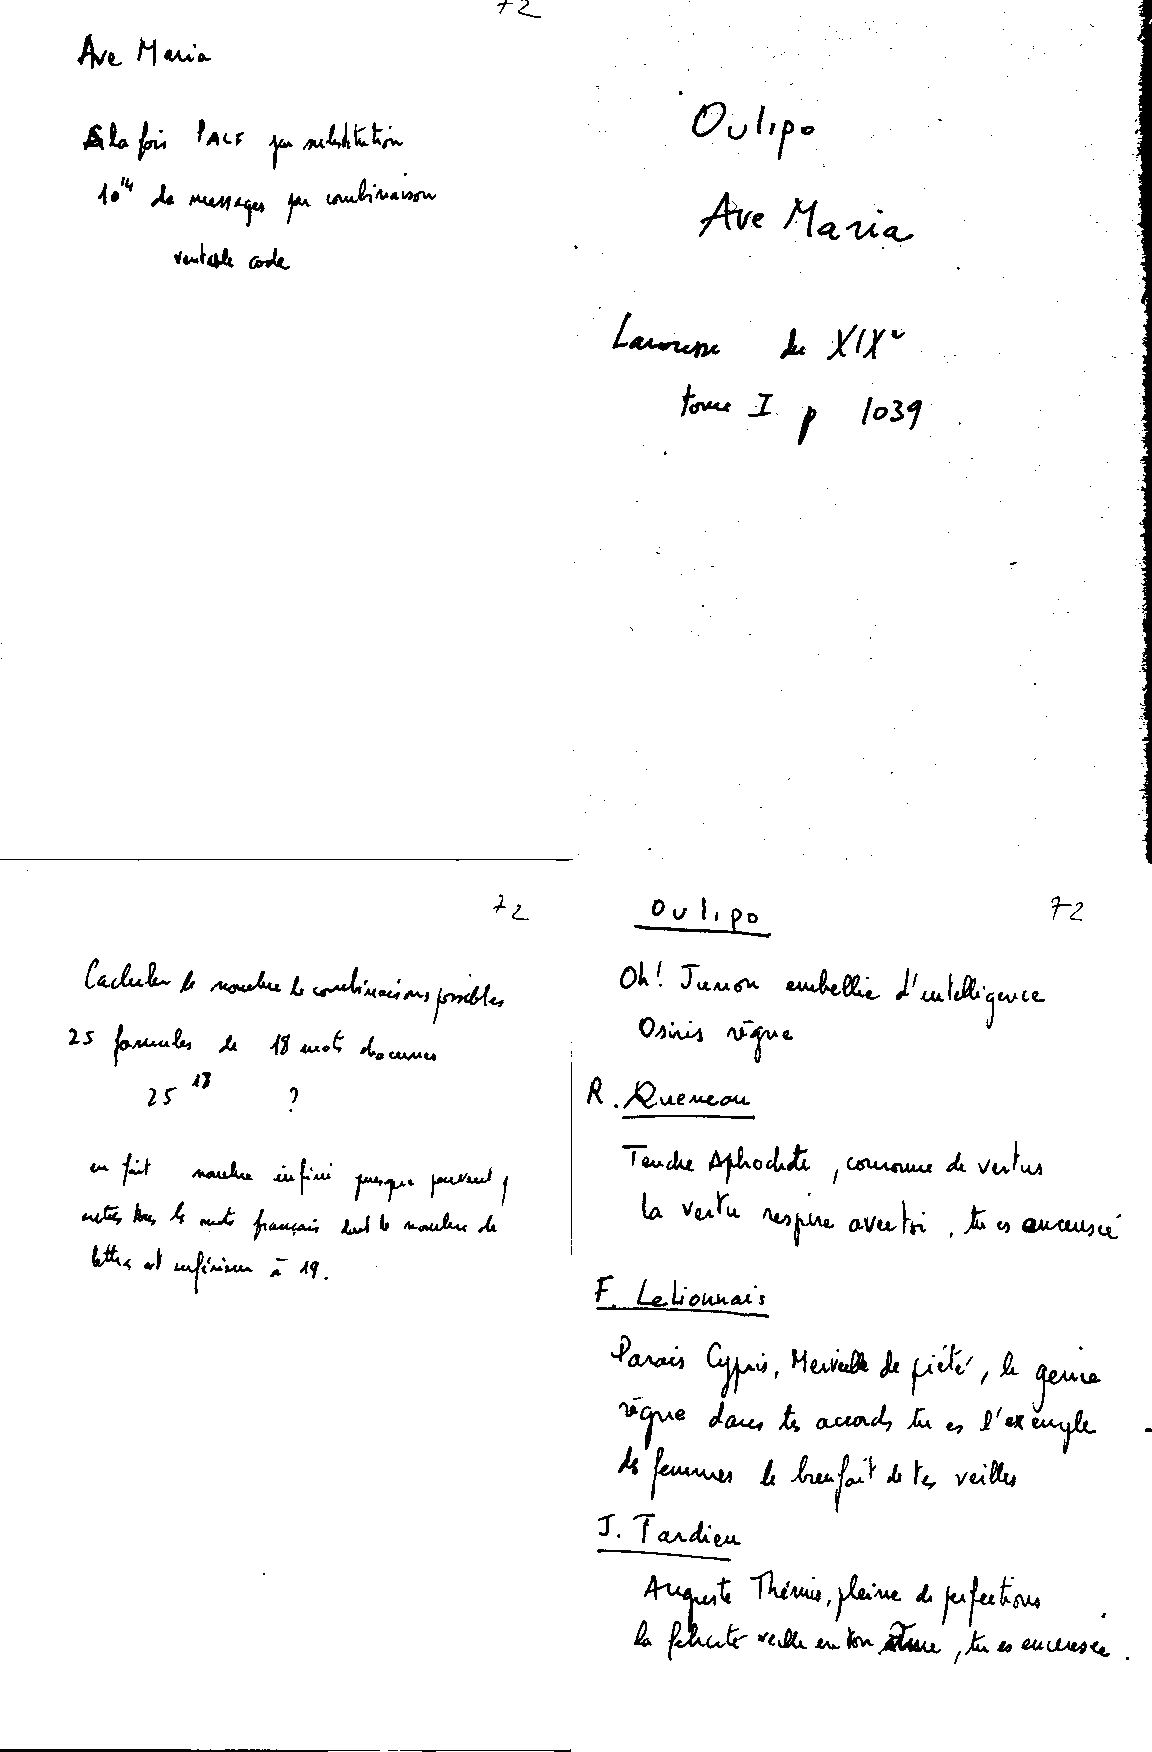 72
Ave Maria
à la fois PALF par substitution
10^14 de messages par combinaison
véritable code
Oulipo
Ave Maria
Larousse du XIXe
tome I p 1039
72
Caclculer le nombre de combinaisons possibles
25 formules de 18 mots chacunes
25^18 ?
en fait nombre infini puisque peuvent y
entrer tous les mots français dont le nombre de
lettres est inférieur à 19.
Oulipo 72
Oh! Junon embellie d'intelligence
Osiris règne
R. Queneau
Tendre Aphrodite, couronne de vertus
la vertu respire avec toi, tu es encensée
F. Le Lionnais
Parais Cypris, Merveille de piété, le génie
règne dans tes accords tu es l'exemple
des femmes le bienfait de tes veilles
J. Tardieu
Auguste Thémis, pleine de perfections
la félicité veille en ton âme, tu es encensée.